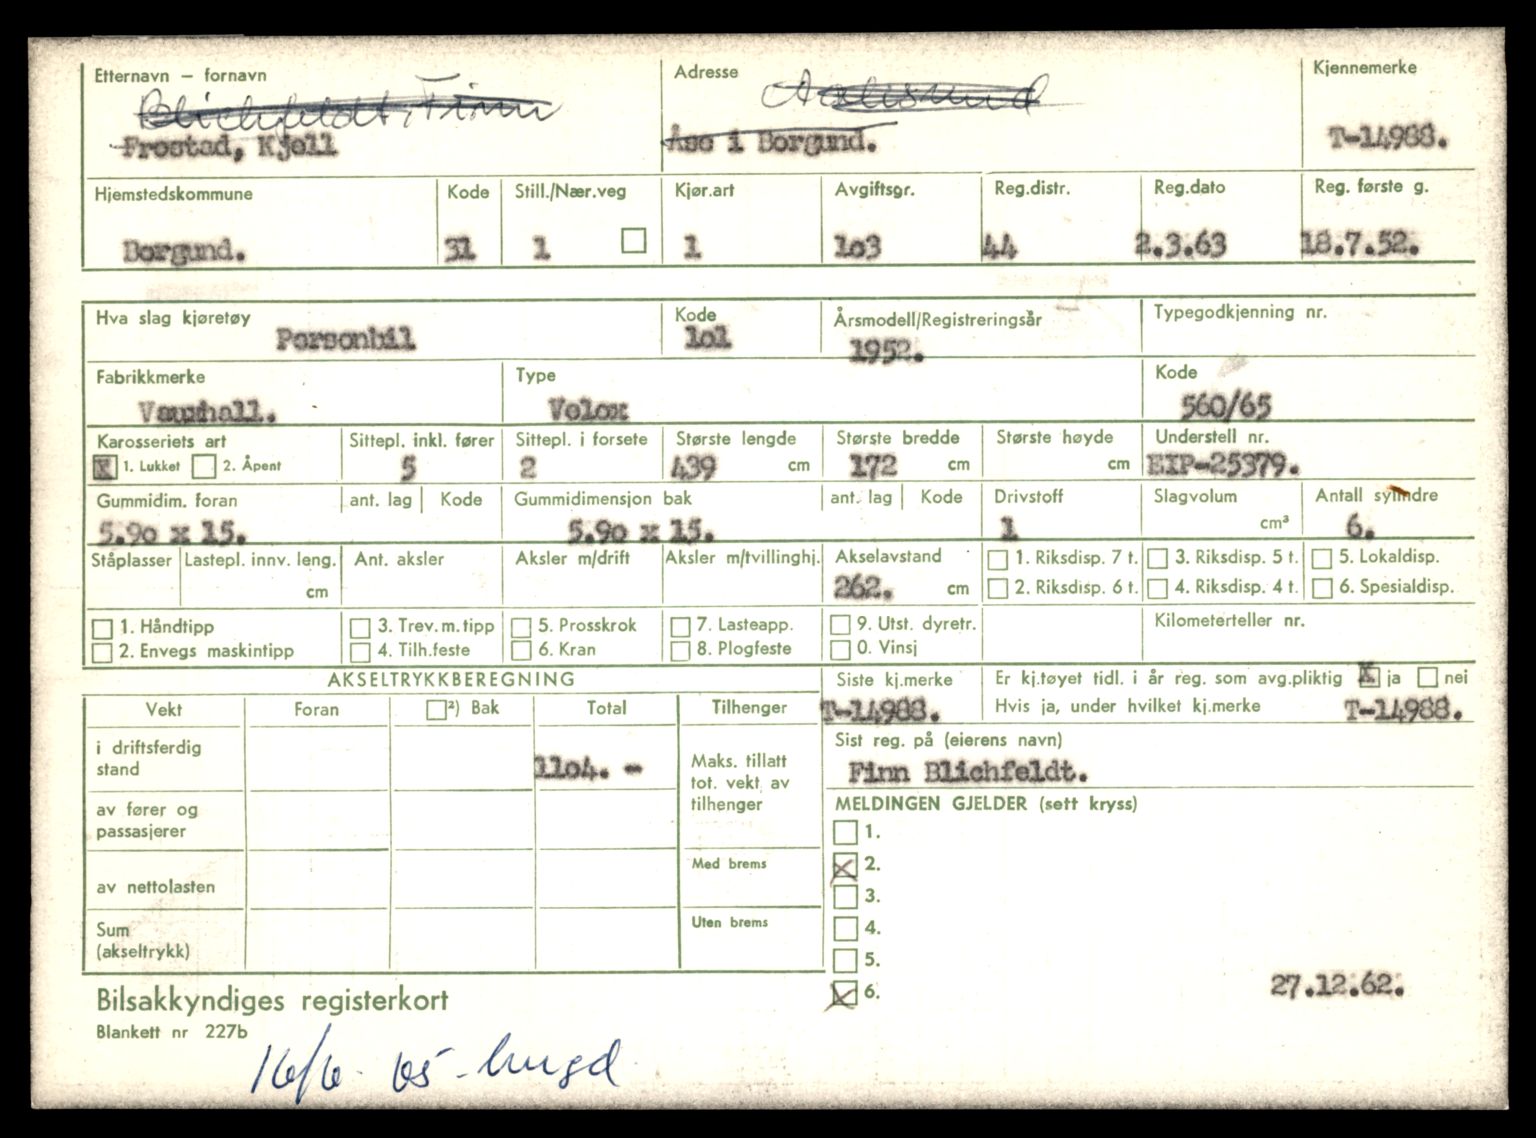 Etternavn – fornavn Adresse Kjennemerke
Blichfeldt, Finn Aalesund
Frostad, Kjell Åse i Borgund. T-14988.
Hjemstedskommune Kode Still./Nær.veg Kjør.art Avgiftsgr. Reg.distr. Reg.dato Reg. første g.
Borgund. 31 1 1 1o3 44 2.3.63 18.7.52.
Hva slag kjøretøy Kode Årsmodell/Registreringsår Typegodkjenning nr.
Personbil 1o1 1952.
Fabrikkmerke Type Kode
Vauxhall. Velox 560/65
Karosseriets art Sittepl. inkl. fører Sittepl. i forsete Største lengde Største bredde Største høyde Understell nr.
X 1. Lukket 2. Åpent 5 2 439 cm 172 cm cm EIP-25379.
Gummidim. foran ant. lag Kode Gummidimensjon bak ant. lag Kode Drivstoff Slagvolum Antall sylindre
5.9o x 15. 5.9o x 15. 1 cm³ 6.
Ståplasser Lastepl. innv. leng. Ant. aksler Aksler m/drift Aksler m/tvillinghj. Akselavstand 1. Riksdisp. 7 t. 3. Riksdisp. 5 t. 5. Lokaldisp.
cm 262. cm 2. Riksdisp. 6 t. 4. Riksdisp. 4 t. 6. Spesialdisp.
1. Håndtipp 3. Trev.m.tipp 5. Prosskrok 7. Lasteapp. 9. Utst. dyretr. Kilometerteller nr.
2. Envegs maskintipp 4. Tilh.feste 6. Kran 8. Plogfeste 0. Vinsj
AKSELTRYKKBEREGNING Siste kj.merke Er kj.tøyet tidl. i år reg. som avg.pliktig X ja nei
Vekt Foran ²) Bak Total Tilhenger T-14988. Hvis ja, under hvilket kj.merke T-14988.
i driftsferdig stand 11o4. - Maks. tillatt tot. vekt av tilhenger Sist reg. på (eierens navn)
Finn Blichfeldt.
av fører og passasjerer MELDINGEN GJELDER (sett kryss)
1.
av nettolasten Med brems X 2.
3.
Sum (akseltrykk) Uten brems 4.
5.
Bilsakkyndiges registerkort X 6. 27.12.62.
Blankett nr 227b
16/6 65 - hugd